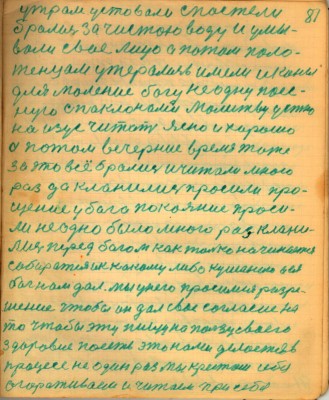 81
утрам уставали с постели
брались за чистою воду и умы-
вали свае лицо а потом поло-
тенцам утерались имели иконы
для моление богу не одну поес-
ную с паклонами молитву устно
на изус читат ясно и харошо
а потом вечерние время тоже
за это всё брались и читали много
раз да кланились просили про-
щение у бога покояние проси-
ли не одно было много раз клани-
лись перед богом как толко начинается
собиратся к какому либо кушению
бог нам дал мы у него просим разре-
шение чтобы он дал свае согласие на
то чтобы эту пищу на ползу своего
здоровие поесть это нами делается в
процесе не один раз мы крестом себя
огораживаем и читаем при себе